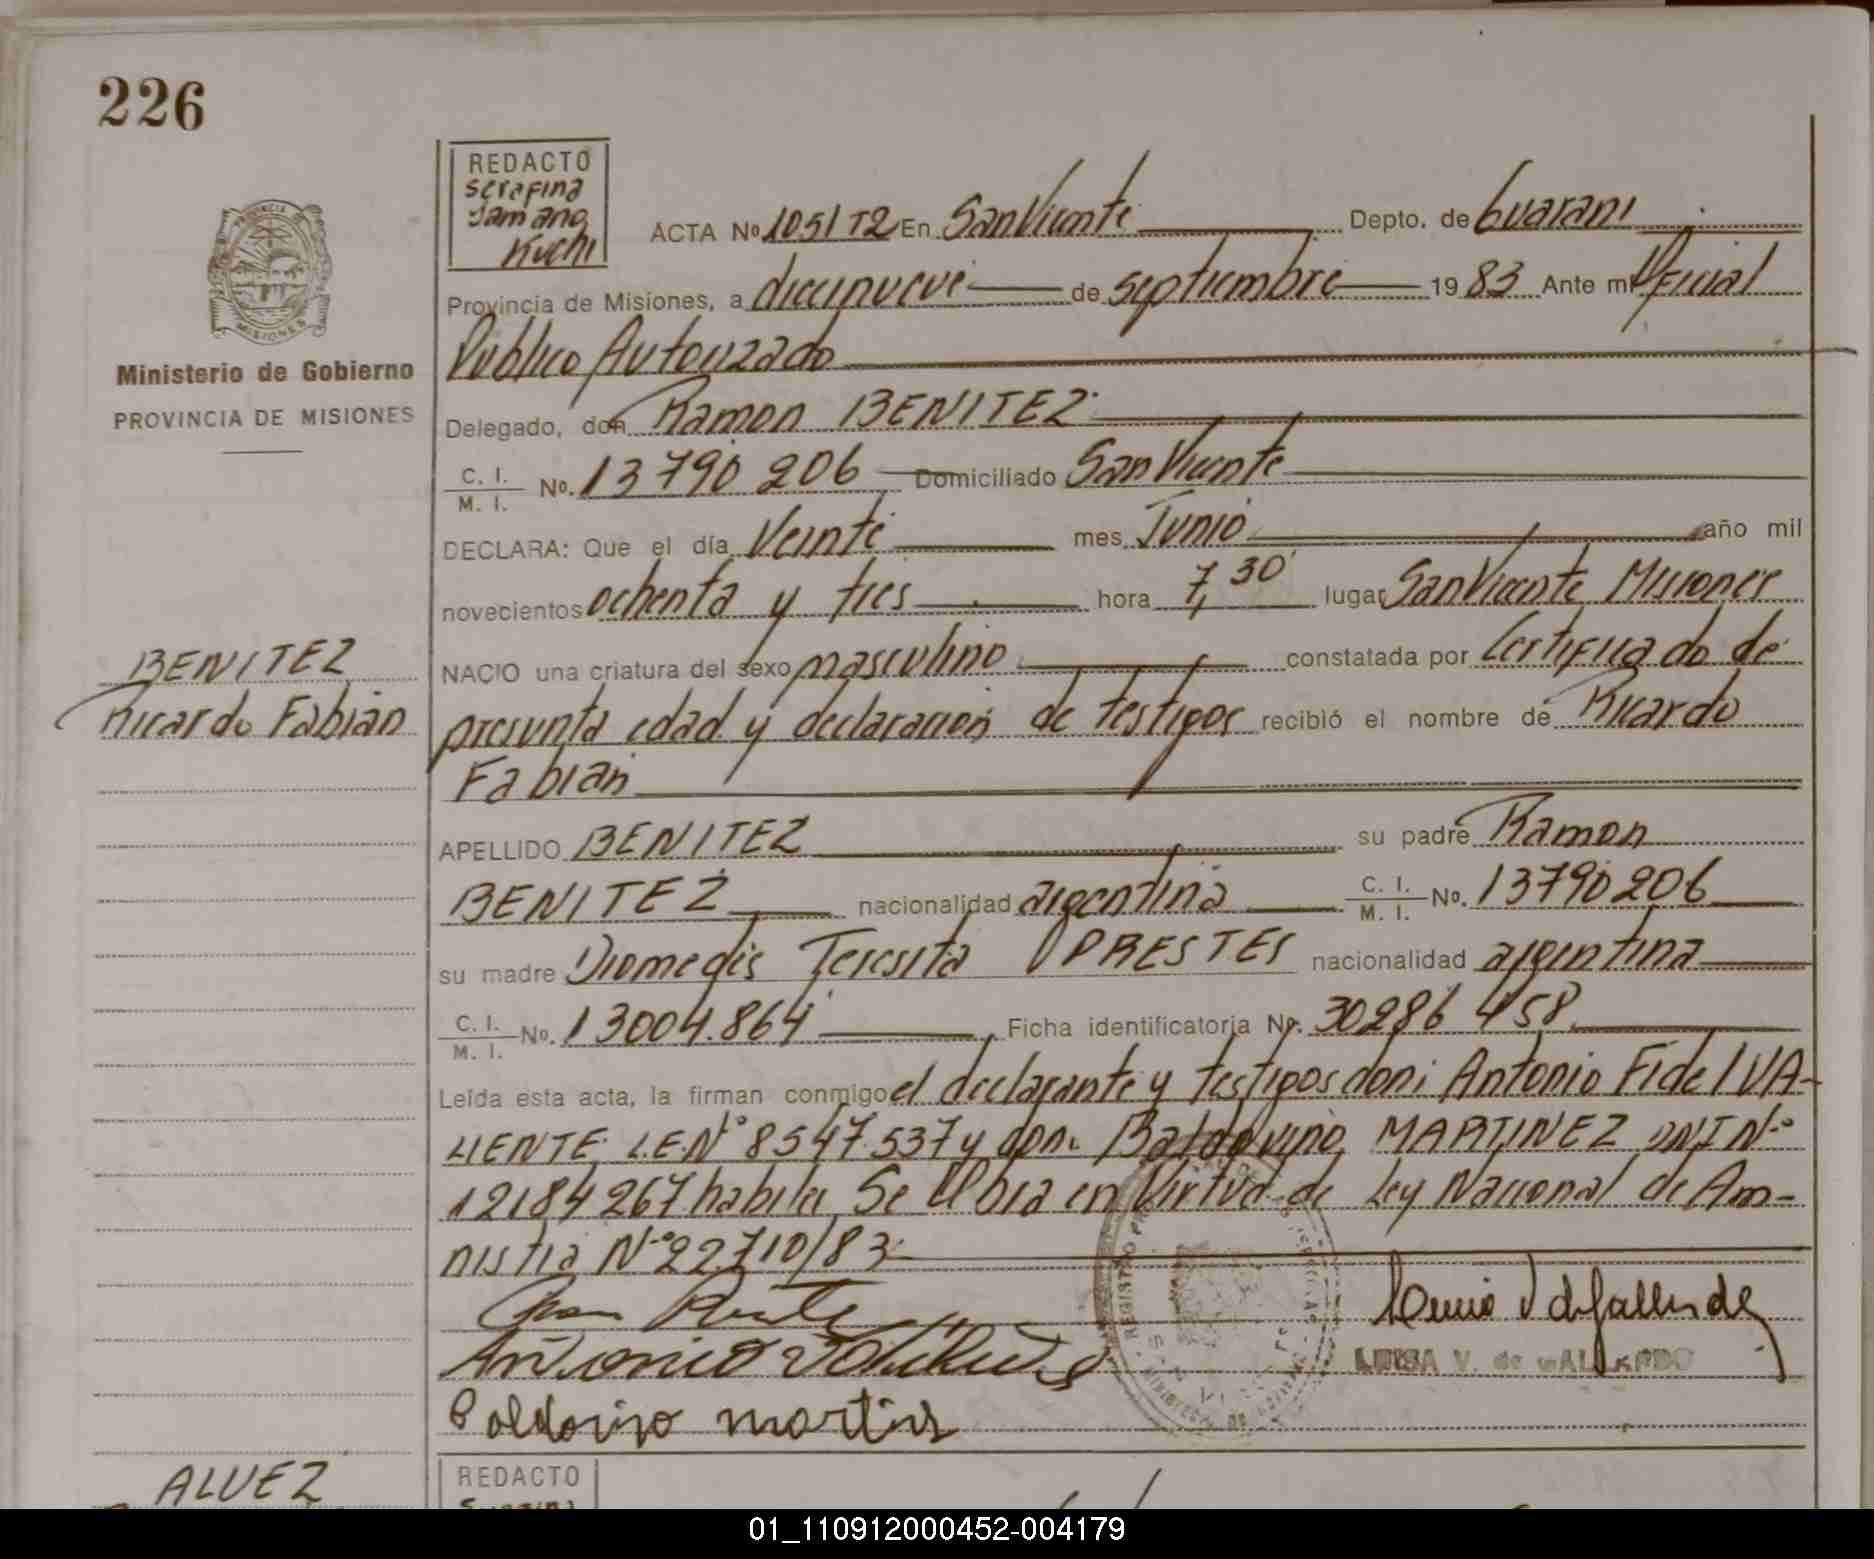 226
REDACTO
Serafina
Kuchi
ACTA Nº 1051 T2 En San Vicente Depto. de Guarani
Provincia de Misiones, a diecinueve de septiembre 1983 Ante mi Oficial
Público Autorizado
Ministerio de Gobierno
PROVINCIA DE MISIONES
Delegado, don Ramon BENITEZ
C. I.
M. I. Nº. 13790206 Domiciliado San Vicente
DECLARA: Que el día Veinte mes Junio año mil
novecientos ochenta y tres hora 7,30 lugar San Vicente Misiones
BENITEZ
Ricardo Fabián
NACIO una criatura del sexo masculino constatada por Certificado de
presunta edad y declaración de testigos recibió el nombre de Ricardo
Fabián
APELLIDO BENITEZ su padre Ramon
BENITEZ nacionalidad argentina C. I. M. I. Nº. 13790206
su madre Diomedis Teresita PRESTES nacionalidad argentina
C. I. M. I. Nº. 13004.864 Ficha identificatoria Nº. 30286458
Leída esta acta, la firman conmigo el declarante y testigos don: Antonio Fidel VA-
LIENTE L.E.Nº 8547.537 y don: Baldovino MARTINEZ DNI Nº
12184267 habiles Se labra en Virtud de Ley Nacional de Am-
nistia Nº 22.710/83
LUISA V. de GALLARDO
Baldovino
ALVEZ
REDACTO
01_110912000452-004179